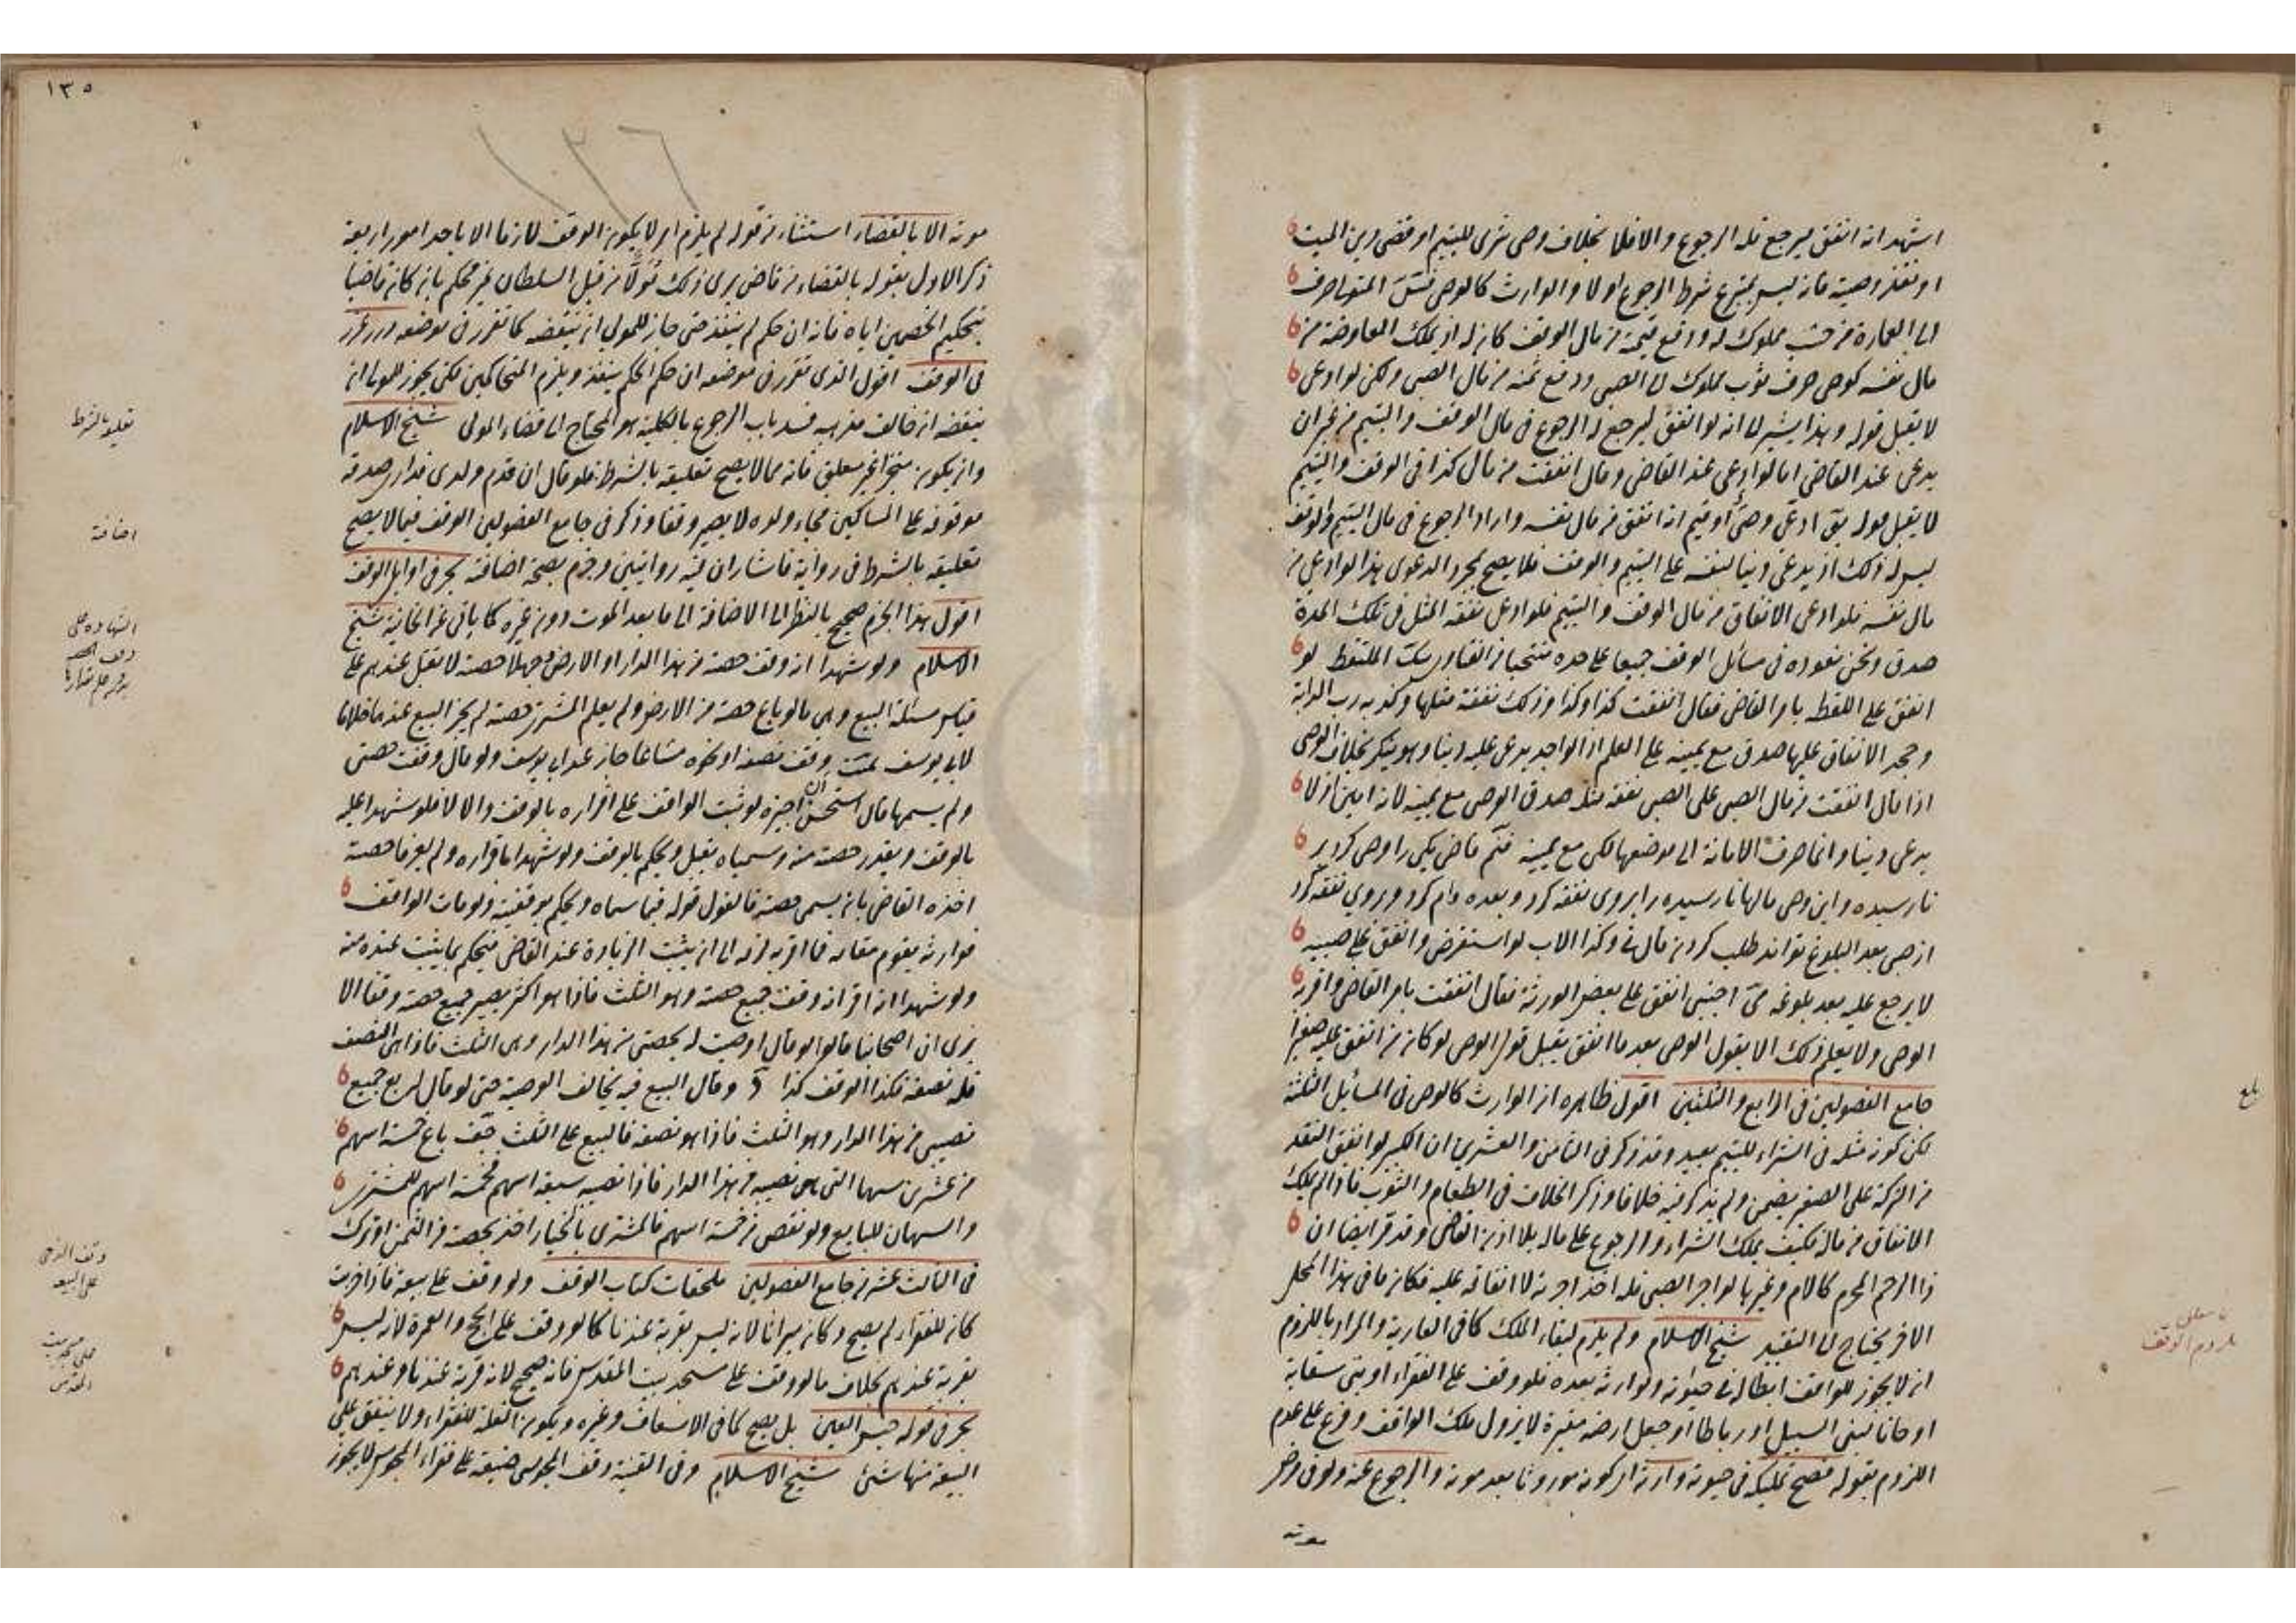 اشهد انه انفق ليرجع فله الرجوع والا فلا بخلاف وصي شرى لليتيم او قضى دين الميت
او نفذ وصية فانه ليس بمتبرع شرط الرجوع او لا والوارث كالوصي المتولي صرف
الى العمارة من خشب مملوك له ودفع قيمته من مال الوقف كان له اذ يملك المعاوضة من
مال نفسه كوصي صرف ثوب مملوك له الى الصبي ودفع ثمنه من مال الصبي ولكن لو ادعى
لا يقبل قوله وهذا يشير الى انه لو انفق ليرجع له الرجوع في مال الوقف واليتيم من غير ان
يدعي عند القاضي اما لو ادعى عند القاضي وقال انفقت من مال كذا في الوقف واليتيم
لا يقبل قوله ادعى وصي او قيم انه انفق من مال نفسه واراد الرجوع في مال اليتيم والوقف
ليس له ذلك اذ يدعي دينا لنفسه على اليتيم والوقف فلا يصح بمجرد الدعوى هذا لو ادعى من
مال نفسه فلو ادعى الانفاق من مال الوقف واليتيم فلو ادعى نفقة المثل في تلك المدة
صدق ونحن نعوده في مسائل الوقف جميعا على حده الملتقط لو
انفق على اللقط بامر القاضي فقال انفقت كذا وكذا وذلك نفقة مثلها وكذبه رب الدابة
وجحد الانفاق عليها صدق مع يمينه على العلم اذ الواجد يدعي عليه دينا وهو ينكر بخلاف الوصي
اذا قال انفقت من مال الصبي على الصبي نفقة مثله صدق الوصي مع يمينه لانه امين اذ لا
يدعي دينا وانما صرف الامانة الى موضعها لكن مع يمينه قاضي يكي را وصي كرد بر
نارسيده واين وصي مالها نارسيده را بروي نفقه كرد وبعده وام كرد وبروي نفقه كرد
از صبي بعد البلوغ تواند طلب كردن قال وكذا الاب لو استقرض وانفق على صبيه
لا يرجع عليه بعد بلوغه اجنبي انفق على بعض الورثة فقال انفقت بامر القاضي واقر به
الوصي ولا يعلم ذلك الا بقول الوصي بعد ما انفق يقبل قول الوصي لو كان من انفق عليه صغيرا
جامع الفصولين في الرابع والثلثين اقول ظاهره ان الوارث كالوصي في المسائل الثلثة
لكن كون مثله في الشراء لليتيم بعيد وقد ذكر في الثامن والعشرين ان الكبير لو انفق النقد
من التركة على الصغير يضمن ولم يذكر فيه خلافا وذكر الخلاف في الطعام والثوب فاذا لم يملك
الانفاق من ماله فكيف يملك الشراء والرجوع على ماله بلا اذن القاضي وقد قر ايضا ان
ذا الرحم المحرم كالام وغيرها لو اجر الصبي فله اخذ اجرته لا انفاقه عليه فكان ما في هذا المحل
الاخر يحتاج الى التقييد شيخ الاسلام ولم يلزم لبقاء الملك كما في العارية والمراد باللزوم
ان لا يجوز للواقف ابطاله في حيوته ولوارثه بعده فلو وقف على الفقراء او بنى سقاية
او خانا لبني السبيل او رباطا او جعل ارضه مقبرة لا يزول ملك الواقف وفرع على عدم
اللزوم بقوله فصح تمليكه في حيوته وارثه اي كونه موروثا بعد موته والرجوع عنه ولو في مرض
موته
بلغ
لزوم الوقف
١٣٥
١٣٦
موته الا بالقضاء استثناء من قوله لم يلزم اي لا يكون الوقف لازما الا باحد امور اربعة
ذكر الاول بقوله بالقضاء من قاض يرى ذلك تولا من قبل السلطان غير محكم بان كان قاضيا
بتحكيم الخصمين اياه فانه ان حكم لم ينفذ حتى جاز للمولي ان ينقضه كما تقرر في موضعه درر غرر
في الوقف اقول الذي تقرر في موضعه ان حكم المحكم ينفذ ويلزم المتحاكمين لكن يجوز للمولى ان
ينقضه ان خالف مذهبه فسد باب الرجوع بالكلية هو المحتاج الى قضاء المولى شيخ الاسلام
وان يكون منجزا غير معلق فانه مما لا يصح تعليقه بالشرط فلو قال ان قدم ولدي فداري صدقة
موقوفة على المساكين فجاء ولده لا يصير وقفا وذكر في جامع الفصولين الوقف فيما لا يصح
تعليقه بالشرط في رواية فاشار ان فيه روايتين وجزم بصحة اضافته بحر في اوايل الوقف
اقول هذا الجزم صحيح بالنظر الى الاضافة الى ما بعد الموت دون غيره كما ياتي عن الخانية شيخ
الاسلام ولو شهدا انه وقف حصته من هذا الدار او الارض وجهلا حصته لا تقبل عندهم على
قياس مسئلة البيع وهي ما لو باع حصته من الارض ولم يعلم المشتري حصته لم يجز البيع عندهما خلافا
لابي يوسف وقف نصفه او نحوه مشاعا جاز عند ابي يوسف ولو قال وقفت حصتي
ولم يسمها قال استحسن ان اجيزه لو ثبت الواقف على اقراره بالوقف والا لا فلو شهدا عليه
بالوقف وبقدر حصته منه وسمياه يقبل ويحكم بالوقف ولو شهدا باقراره ولم يعرفا حصته
اخذه القاضي بان يسمي حصته فالقول قوله فيما سماه ويحكم بوقفيته ولو مات الواقف
فوارثه يقوم مقامه فما اقر به لزمه الى ان يثبت الزيادة عند القاضي فيحكم بما يثبت عنده منه
ولو شهدا انه اقر انه وقف جميع حصته وهو الثلث فاذا هو اكثر يصير جميع حصته وقفا الا
يرى ان اصحابنا قالوا لو قال اوصيت له بحصتي من هذا الدار وهي الثلث فاذا هي النصف
فله نصفه فكذا الوقف كذا وقال البيع فيه يخالف الوصية حتى لو قال لم بع جميع
نصيبي من هذا الدار وهو الثلث فاذا هو نصفه فالبيع على الثلث باع خمسة اسهم
من عشرين سهما التي هي نصيبه من هذا الدار فاذا نصيبه سبعة اسهم فخمسة اسهم للمشتري
والسهمان للبايع ولو نقص من خمسة اسهم فالمشتري بالخيار اخذ بحصته من الثمن او ترك
في الثالث عشر من جامع الفصولين ملحقات كتاب الوقف ولو وقف على بيعة فاذا خربت
كان للفقراء لم يصح وكان ميراثا لانه ليس بقربة عندنا كما لو وقف على الحج والعمرة لانه ليس
بقربة عندهم بخلاف ما لو وقف على مسجد بيت المقدس فانه صحيح لانه قربة عندنا وعندهم
بحر في قوله حبس العين بل يصح كما في الاسعاف وغيره ويكون الغلة للفقراء ولا ينفق على
البيعة منها شئ شيخ الاسلام وفي القنية وقف المجوسي ضيعة على فقراء المجوس لا يجوز
تعليقه بالشرط
اضافة
الشهادة على
وقف الذمي
على البيعة